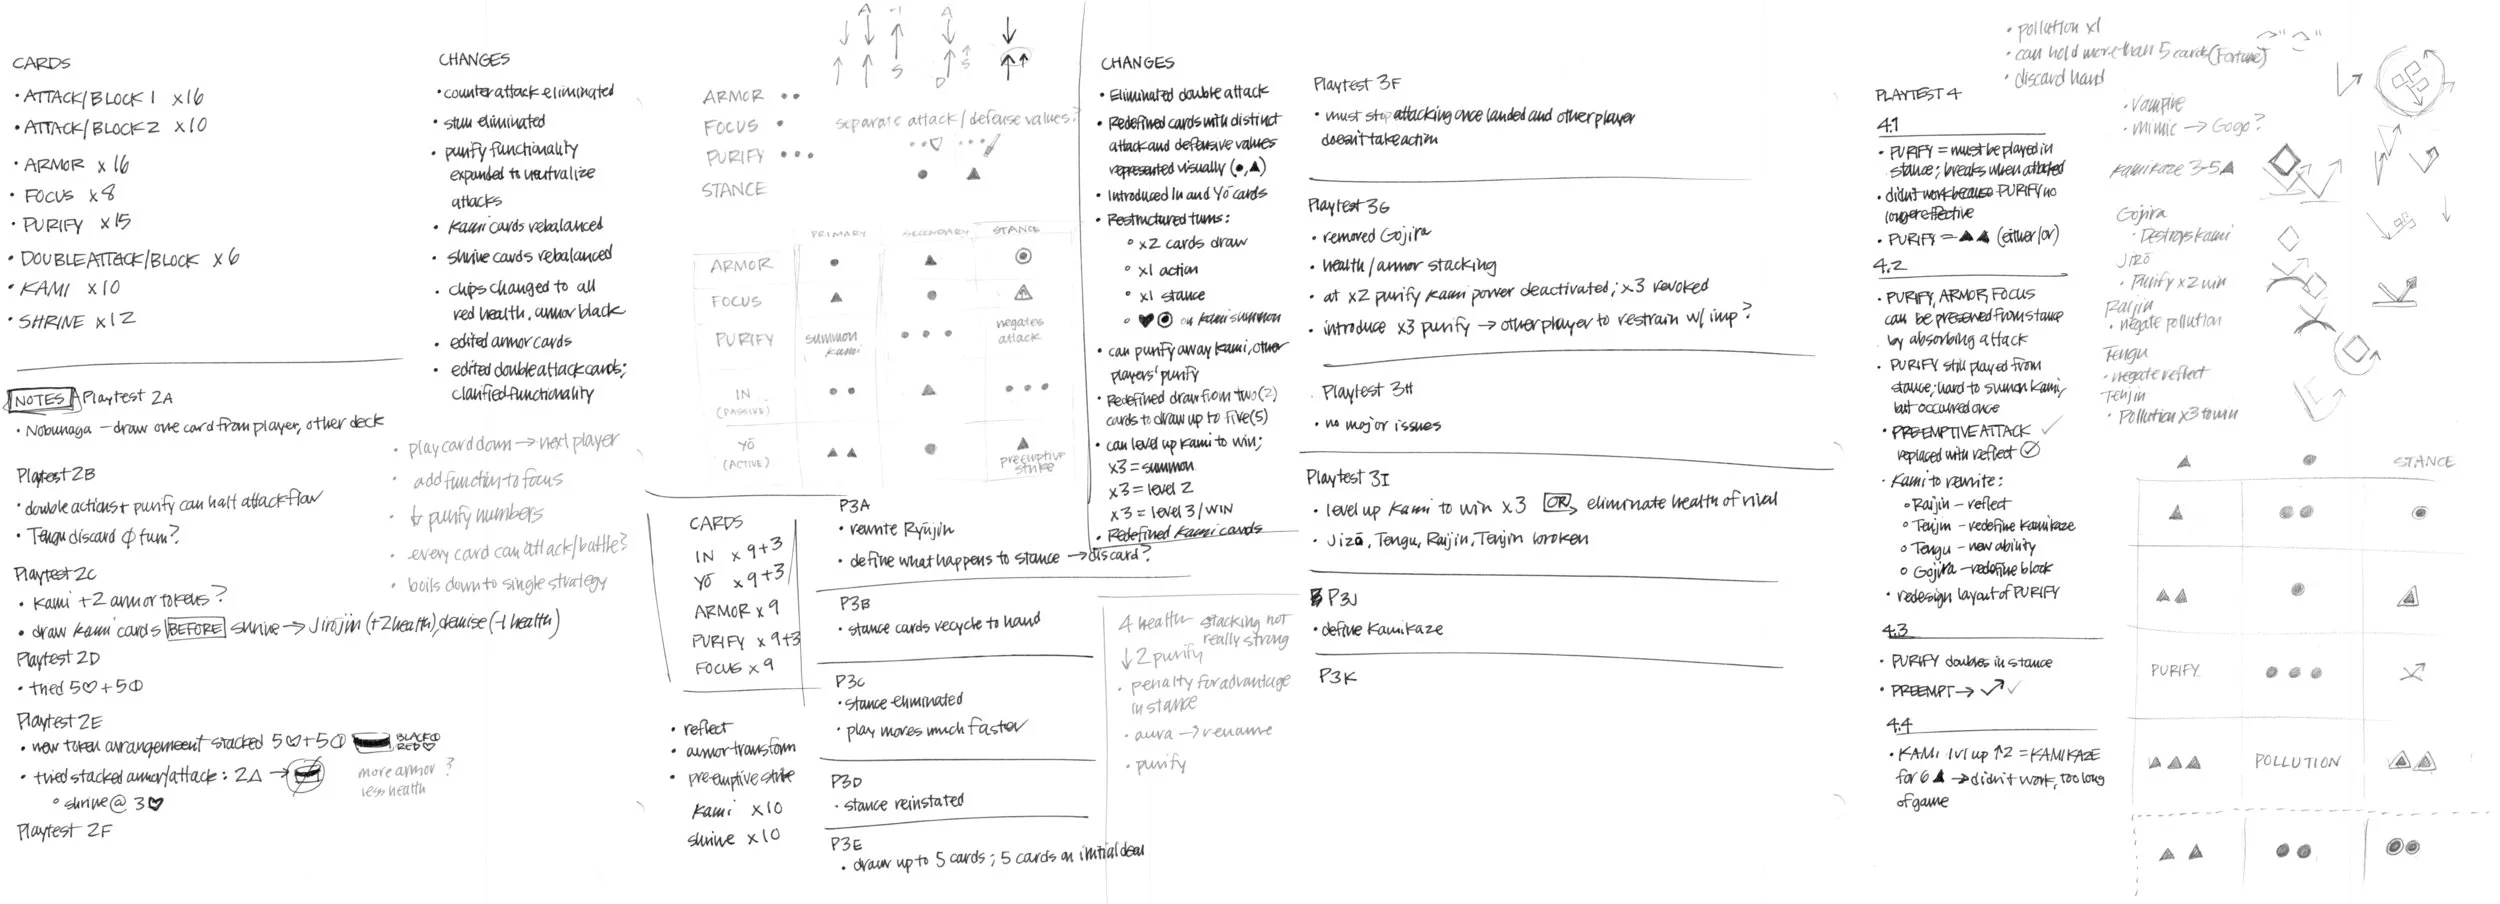 CARDS
• ATTACK/BLOCK 1 x16
• ATTACK/BLOCK 2 x10
• ARMOR x16
• FOCUS x8
• PURIFY x15
• DOUBLE ATTACK/BLOCK x6
• KAMI x10
• SHRINE x12
NOTES Playtest 2A
• Nobunaga — draw one card from player, other deck
Playtest 2B
• double actions + purify can halt attack flow
• Tengu discard turn?
Playtest 2C
• Kami +2 armor tokens?
• draw Kami cards BEFORE shrine → Jirōjin (+2 health), demise (-1 health)
Playtest 2D
• tried 5♡ + 5
Playtest 2E
• new token arrangement stacked 5♡ + 5 BLACK RED♡
• tried stacked armor/attack: 2△ →
° shrine @ 3♥
Playtest 2F
more armor?
less health
CHANGES
• counter attack eliminated
• stun eliminated
• purify functionality
expanded to neutralize
attacks
• Kami cards rebalanced
• shrine cards rebalanced
• chips changed to all
red health, armor black
• edited armor cards
• edited double attack cards;
clarified functionality
• play card down → next player
• add function to focus
• ↓ purify numbers
• every card can attack/battle?
• boils down to single strategy
A -1 A
S D S
ARMOR ••
FOCUS •
PURIFY •••
STANCE
separate attack/defense values?
PRIMARY SECONDARY STANCE
ARMOR ● ▲ ◉
FOCUS ▲ ●
PURIFY summon kami ● ● ● negates attack
IN (PASSIVE) ● ● ▲ ● ● ●
YŌ (ACTIVE) ▲ ▲ ● ▲ preemptive strike
CARDS
IN x 9+3
YŌ x 9+3
ARMOR x 9
PURIFY x 9+3
FOCUS x 9
• reflect
• armor transform
• preemptive strike
Kami x10
shrine x10
P3A
• rewrite Ryūjin
• define what happens to stance → discard?
P3B
• stance cards recycle to hand
P3C
• stance eliminated
• play moves much faster
P3D
• stance reinstated
P3E
• draw up to 5 cards; 5 cards on initial deal
CHANGES
• Eliminated double attack
• Redefined cards with distinct
attack and defensive values
represented visually (●,▲)
• Introduced In and Yō cards
• Restructured turns:
° x2 cards draw
° x1 action
° x1 stance
° ♥ ◉ on Kami summon
• can purify away Kami, other
players' purify
• Redefined draw from two (2)
cards to draw up to five (5)
• can level up Kami to win;
x3 = summon
x3 = level 2
x3 = level 3/WIN
• Redefined Kami cards
4 health stacking not
really strong
↓ 2 purify
• penalty for advantage
in stance
• aura → rename
• purify
Playtest 3F
• must stop attacking once landed and other player
doesn't take action
Playtest 3G
• removed Gojira
• health/armor stacking
• at x2 purify Kami power deactivated; x3 revoked
• introduce x3 purify → other player to restrain w/ imp?
Playtest 3H
• no major issues
Playtest 3I
• level up Kami to win x3 OR eliminate health of rival
• Jizō, Tengu, Raijin, Tenjin broken
P3J
• define Kamikaze
P3K
• pollution x1
• can hold more than 5 cards (Fortune)
• discard hand
PLAYTEST 4
4.1
• PURIFY = must be played in
stance; breaks when attacked
• didn't work because PURIFY no
longer effective
• PURIFY = ▲▲ (either/or)
4.2
• PURIFY, ARMOR, FOCUS
can be preserved from stance
by absorbing attack
• PURIFY still played from
stance; hard to summon Kami,
but occurred once
• PREEMPTIVE ATTACK ✓
replaced with reflect ✓
• Kami to rewrite:
° Raijin — reflect
° Tenjin — redefine Kamikaze
° Tengu — new ability
° Gojira — redefine block
• redesign layout of PURIFY
4.3
• PURIFY doubles in stance
• PREEMPT → ✓
4.4
• KAMI lvl up ↑2 = KAMIKAZE
for 6 ▲ → didn't work, too long
of game
• Vampire
• mimic → Gogo?
Kamikaze 3-5▲
Gojira
• Destroys Kami
Jizō
• Purify x2 win
Raijin
• negate pollution
Tengu
• negate reflect
Tenjin
• Pollution x3 to win
▲ ● STANCE
▲ ●● ◉
▲▲ ●
PURIFY ●●●
▲▲▲ POLLUTION
▲▲ ●● ◉◉